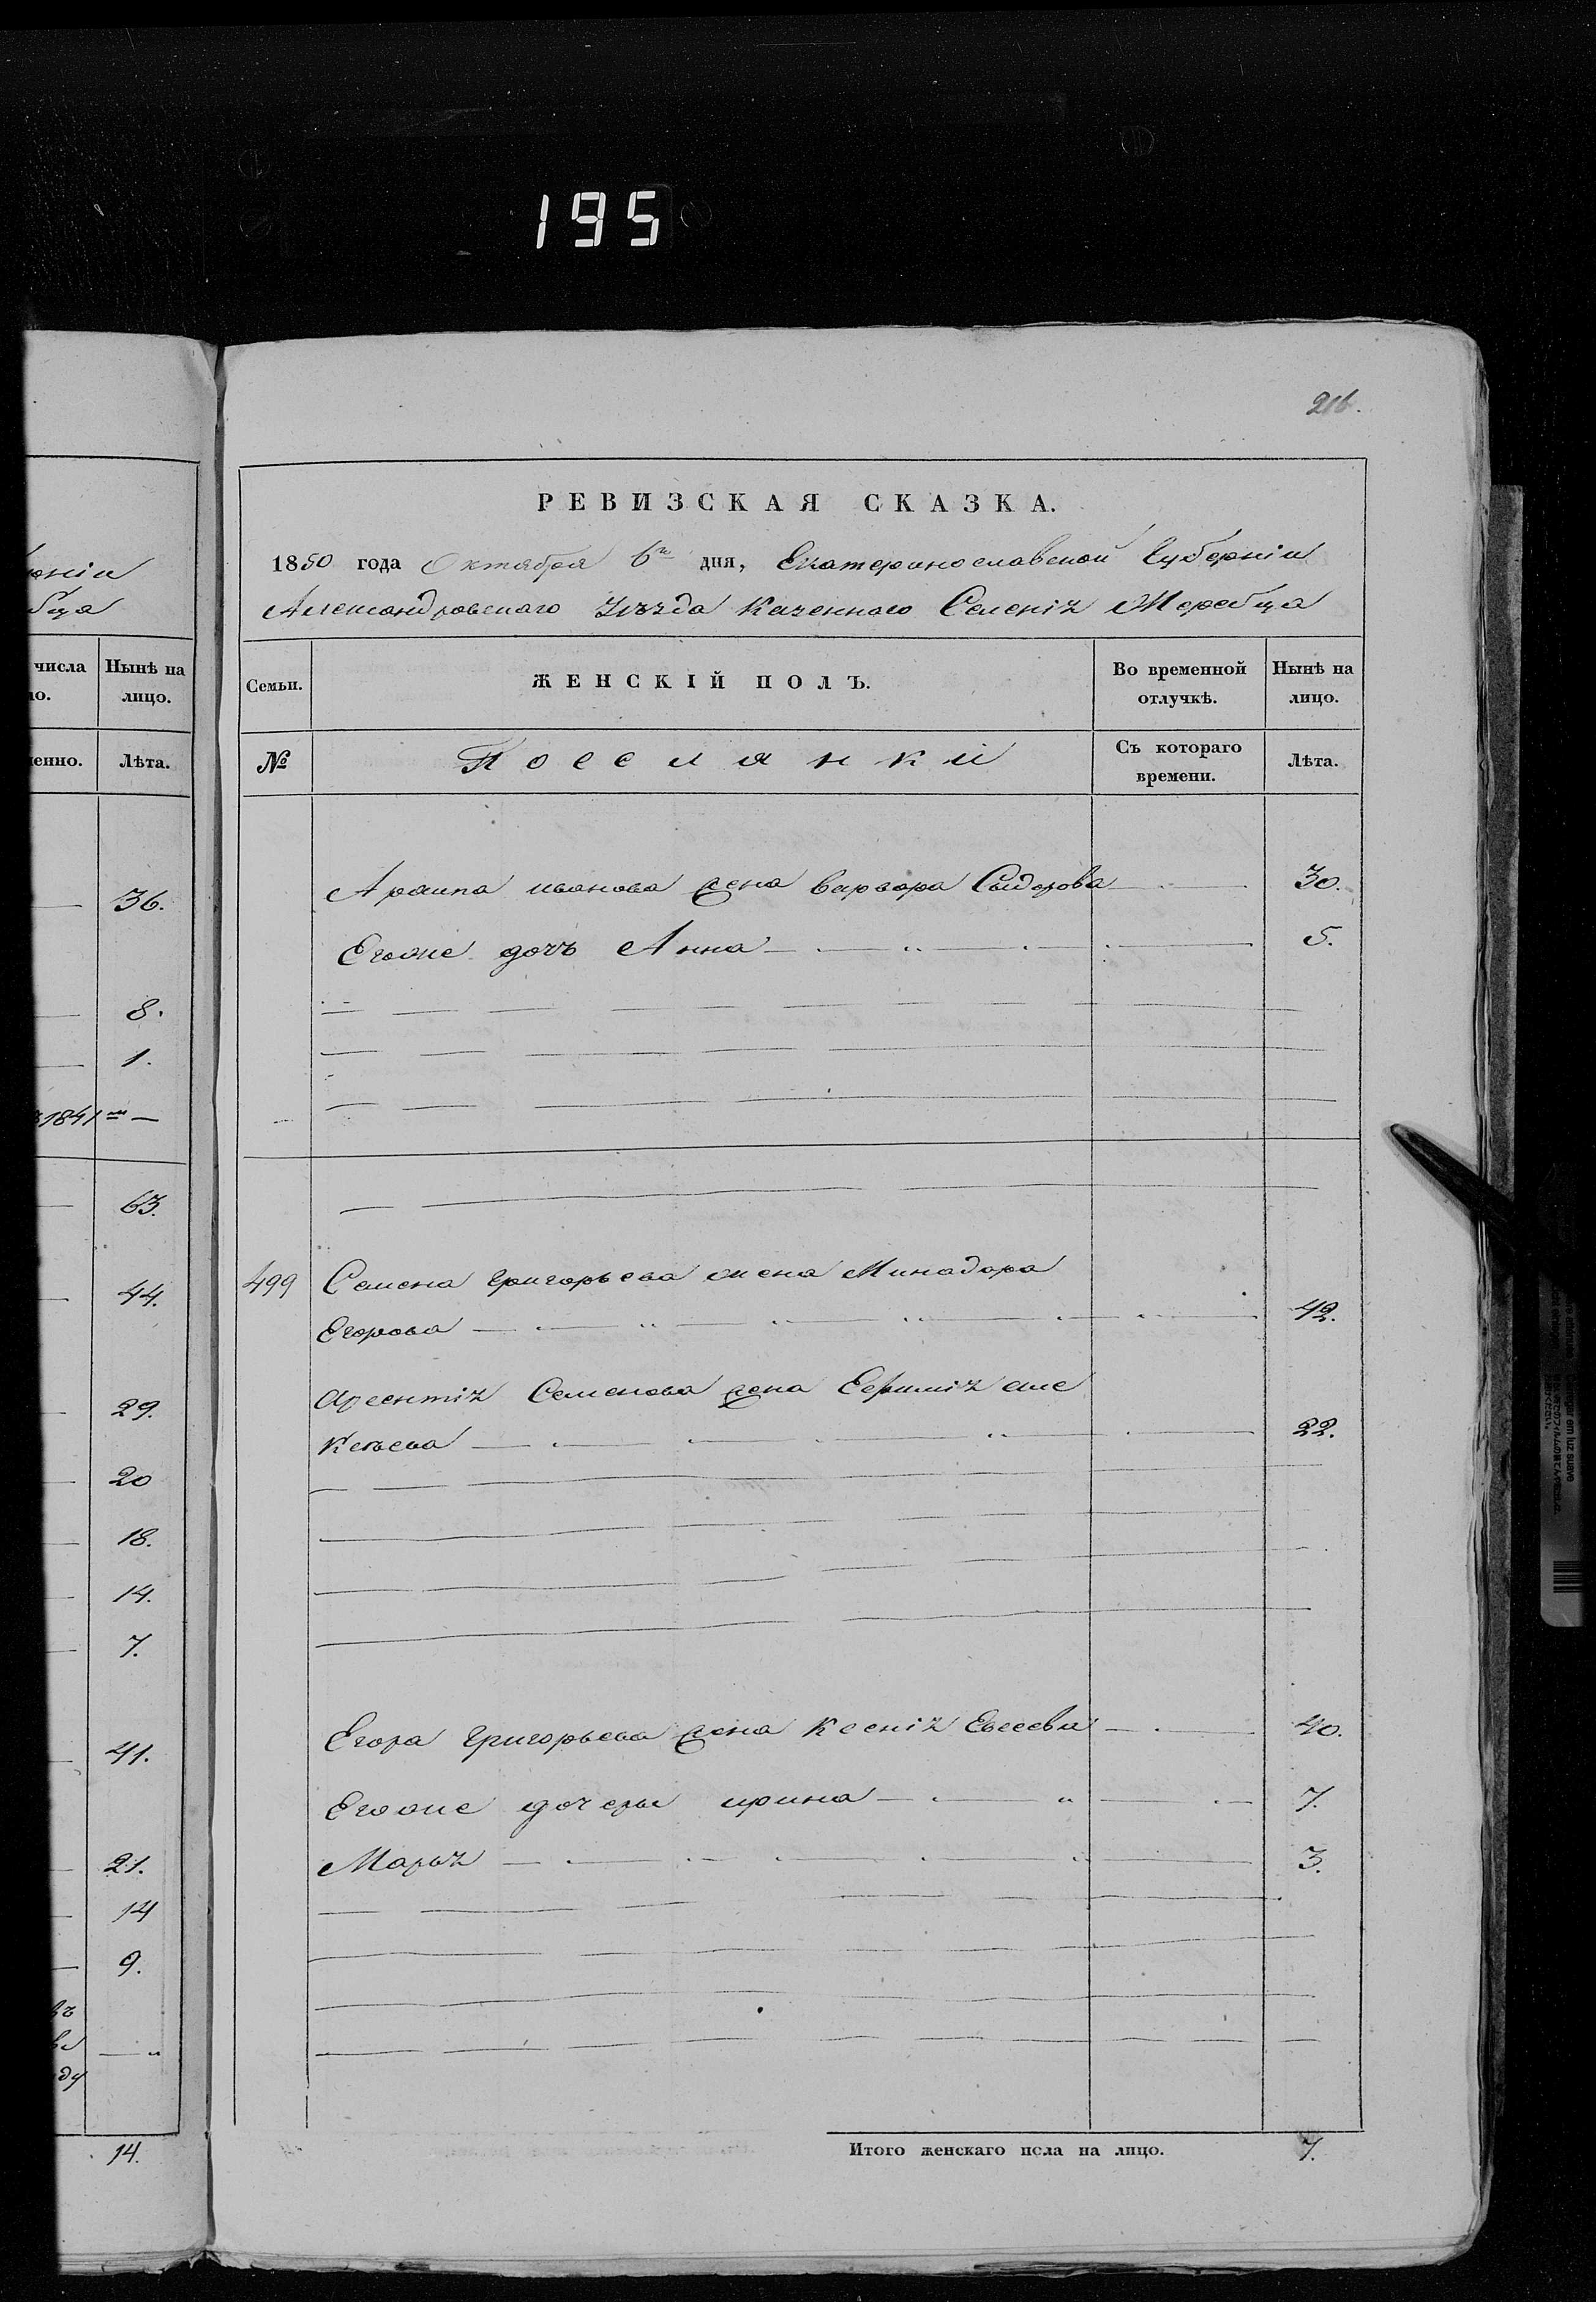 195
216.
РЕВИЗСКАЯ СКАЗКА.
1850 года Октября 6го дня, Екатеринославской Губерніи
Александровскаго Уѣзда Казеннаго Селенія Жеребца
числа Нынѣ на
лицо.
Лѣта.
Семьи.
ЖЕНСКІЙ ПОЛЪ.
Во временной отлучкѣ.
Нынѣ на лицо.
№
Поселянки
Съ котораго времени.
Лѣта.
иванова жена варвара Сидорова 30.
Егоже дочь Анна 5.
499 Семена Григорьева жена Минадора
Егорова 42.
Семенова жена Еефимія але
ксѣева 22.
Егора Григорьева жена Ксенія Евсеева 40.
Егоже дочери ирина 7.
Марья 3.
Итого женскаго пола на лицо. 7.
36.
8.
1.
1841
63.
44.
29.
20
18.
14.
7.
41.
21.
14
9.
14.